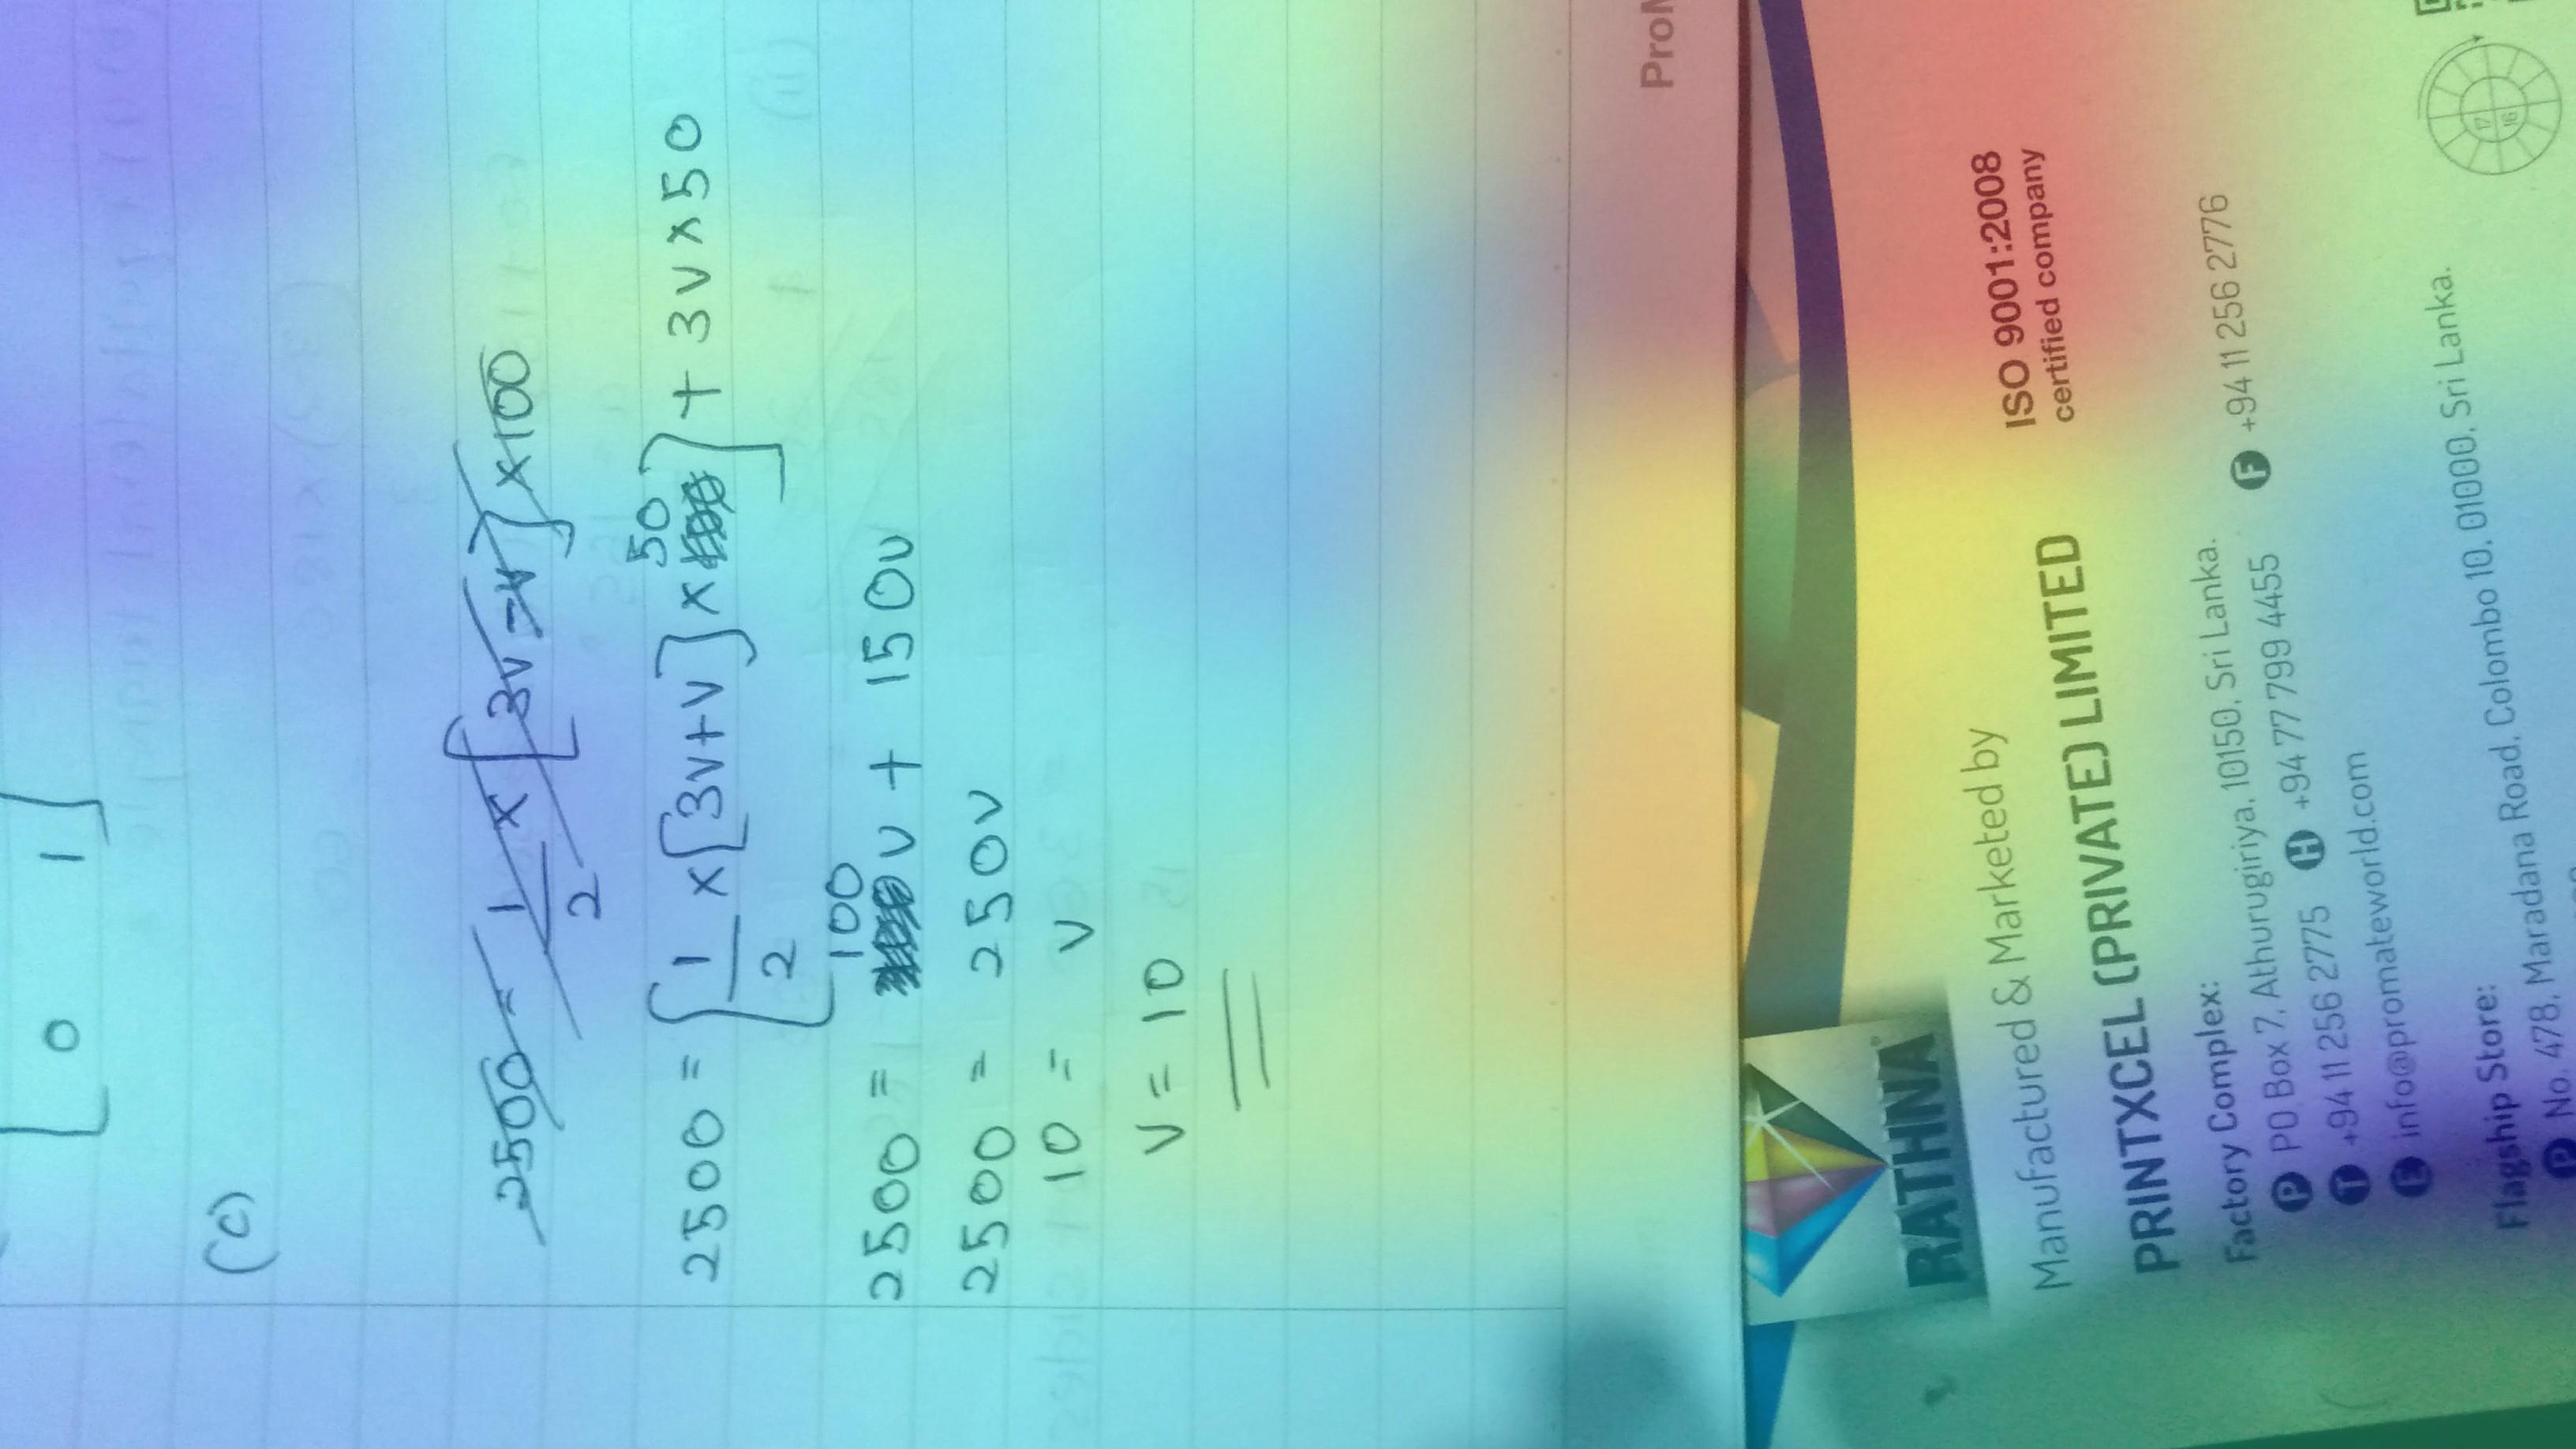 [ 0 1 ]
(c)
2500 = 1/2 x [3v - v] x 100
2500 = [1/2 x [3v+v] x 50] + 3v x 50
2500 = 100 v + 150v
2500 = 250v
10 = v
v = 10
ProM
RATHNA
Manufactured & Marketed by
PRINTXCEL (PRIVATE) LIMITED
ISO 9001:2008
certified company
Factory Complex:
P PO Box 7, Athurugiriya, 10150, Sri Lanka.
T +94 11 256 2775 H +94 77 799 4455 F +94 11 256 2776
E info@promateworld.com
Flagship Store:
P No. 478, Maradana Road, Colombo 10, 01000, Sri Lanka.
17
16